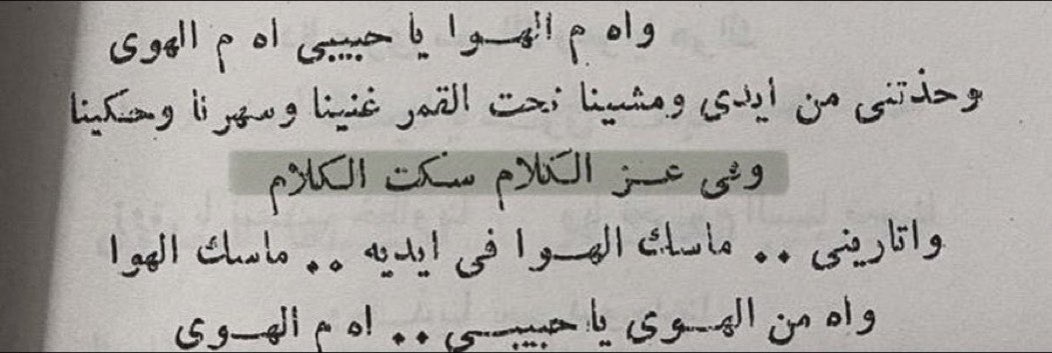 واه م الهـــوا يا حبيبى اه م الهوى
وخذتنى من أيدى ومشينا تحت القمر غنينا وسهرنا وحكينا
وفى عـــز الكلام سكت الكلام
واتارينى .. ماسك الهـــوا فى ايديه .. ماسك الهوا
واه من الهـــوى يا حبيبـــى .. اه م الهـــوى